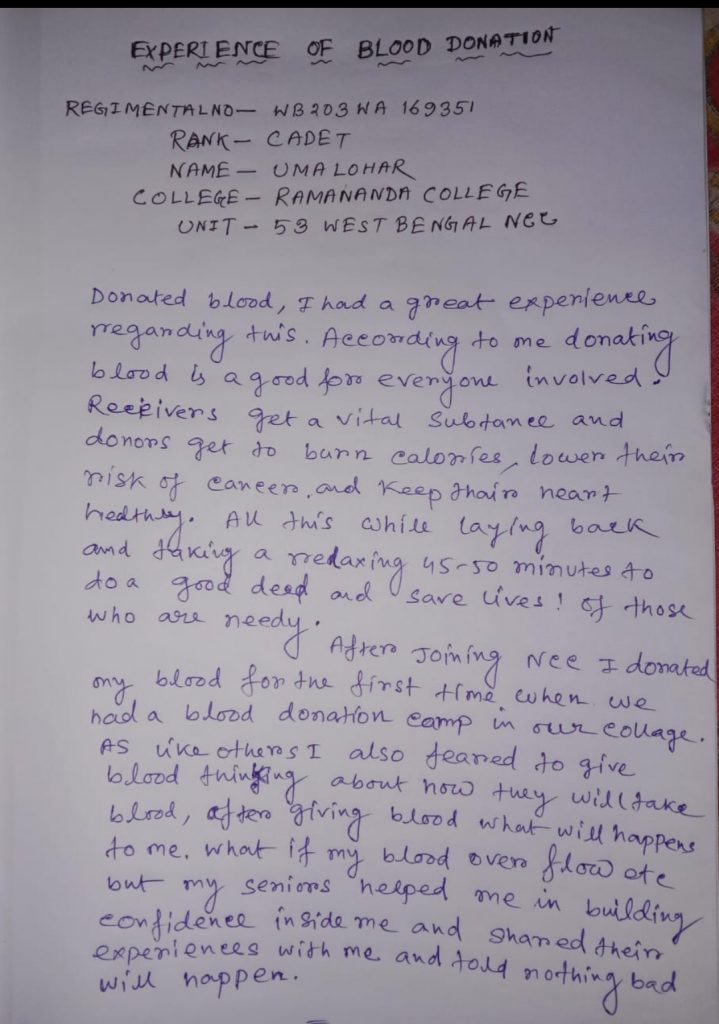 EXPERIENCE OF BLOOD DONATION
REGIMENTAL NO — WB203WA 169351
RANK — CADET
NAME — UMA LOHAR
COLLEGE — RAMANANDA COLLEGE
UNIT — 53 WEST BENGAL NCC
Donated blood, I had a great experience
regarding this. According to me donating
blood is a good for everyone involved.
Receivers get a vital Substance and
donors get to burn calories, lower their
risk of cancer, and keep thair heart
healthy. All this while laying back
and taking a redaxing 45-50 minutes to
do a good deed and save lives! of those
who are needy.
After Joining NCC I donated
my blood for the first time when we
had a blood donation camp in our collage.
AS like others I also feared to give
blood thinking about how they will take
blood, after giving blood what will happens
to me. what if my blood over flow etc
but my seniors helped me in building
confidence inside me and shared their
experiences with me and told nothing bad
will happen.